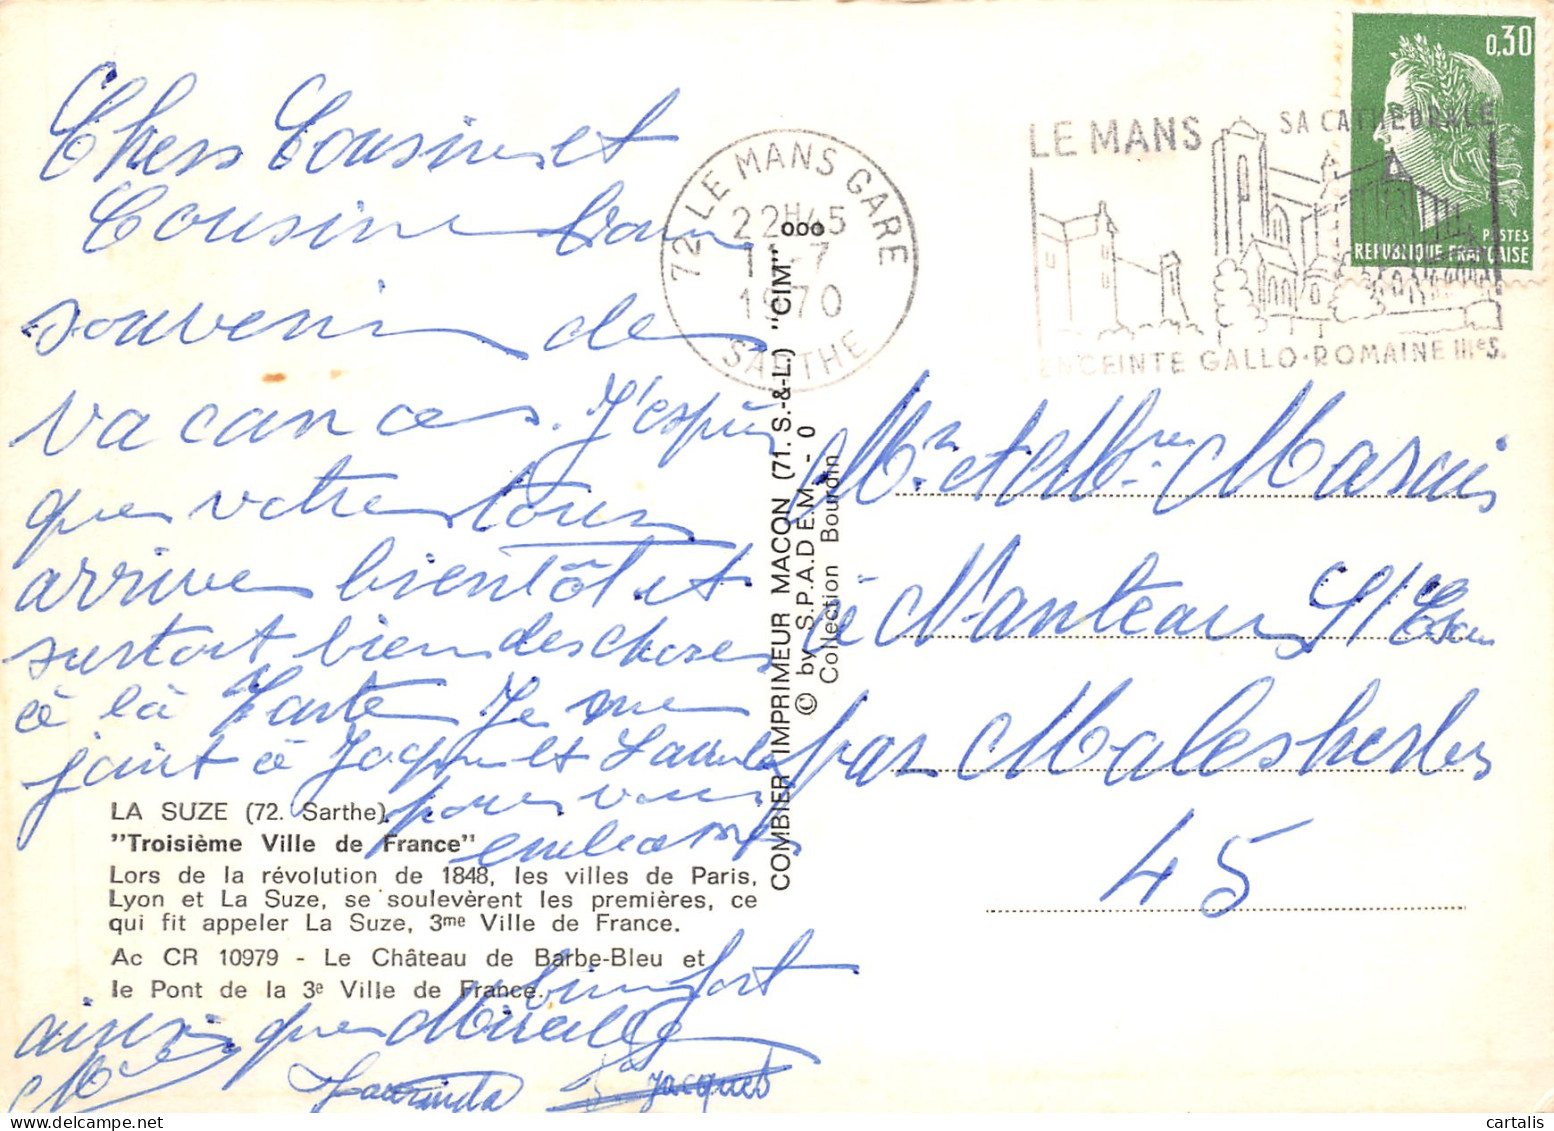 Chers Cousins et
Cousine Bon
souvenir de
vacances. J'espère
que votre tour
arrive bientôt et
surtout bien des choses
à la Tante Je me
joint à Jacques et
pour vous
embrasser
bien fort
ainsi que Mireille
Jacques
LA SUZE (72. Sarthe)
"Troisième Ville de France"
Lors de la révolution de 1848, les villes de Paris,
Lyon et La Suze, se soulevèrent les premières, ce
qui fit appeler La Suze, 3me Ville de France.
Ac CR 10979 - Le Château de Barbe-Bleu et
le Pont de la 3e Ville de France.
COMBIER IMPRIMEUR MACON (71. S.-&-L.) "CIM"
© by S.P.A.D.E.M. - 0
Collection Bourdin
72 LE MANS GARE
22H45
7
1970
SARTHE
LE MANS
SA CATHEDRALE
ENCEINTE GALLO-ROMAINE IIIeS.
0,30
POSTES
REPUBLIQUE FRANÇAISE
Mr et Mme Marais
à Nanteau S/Essonne
par Malesherbes
45